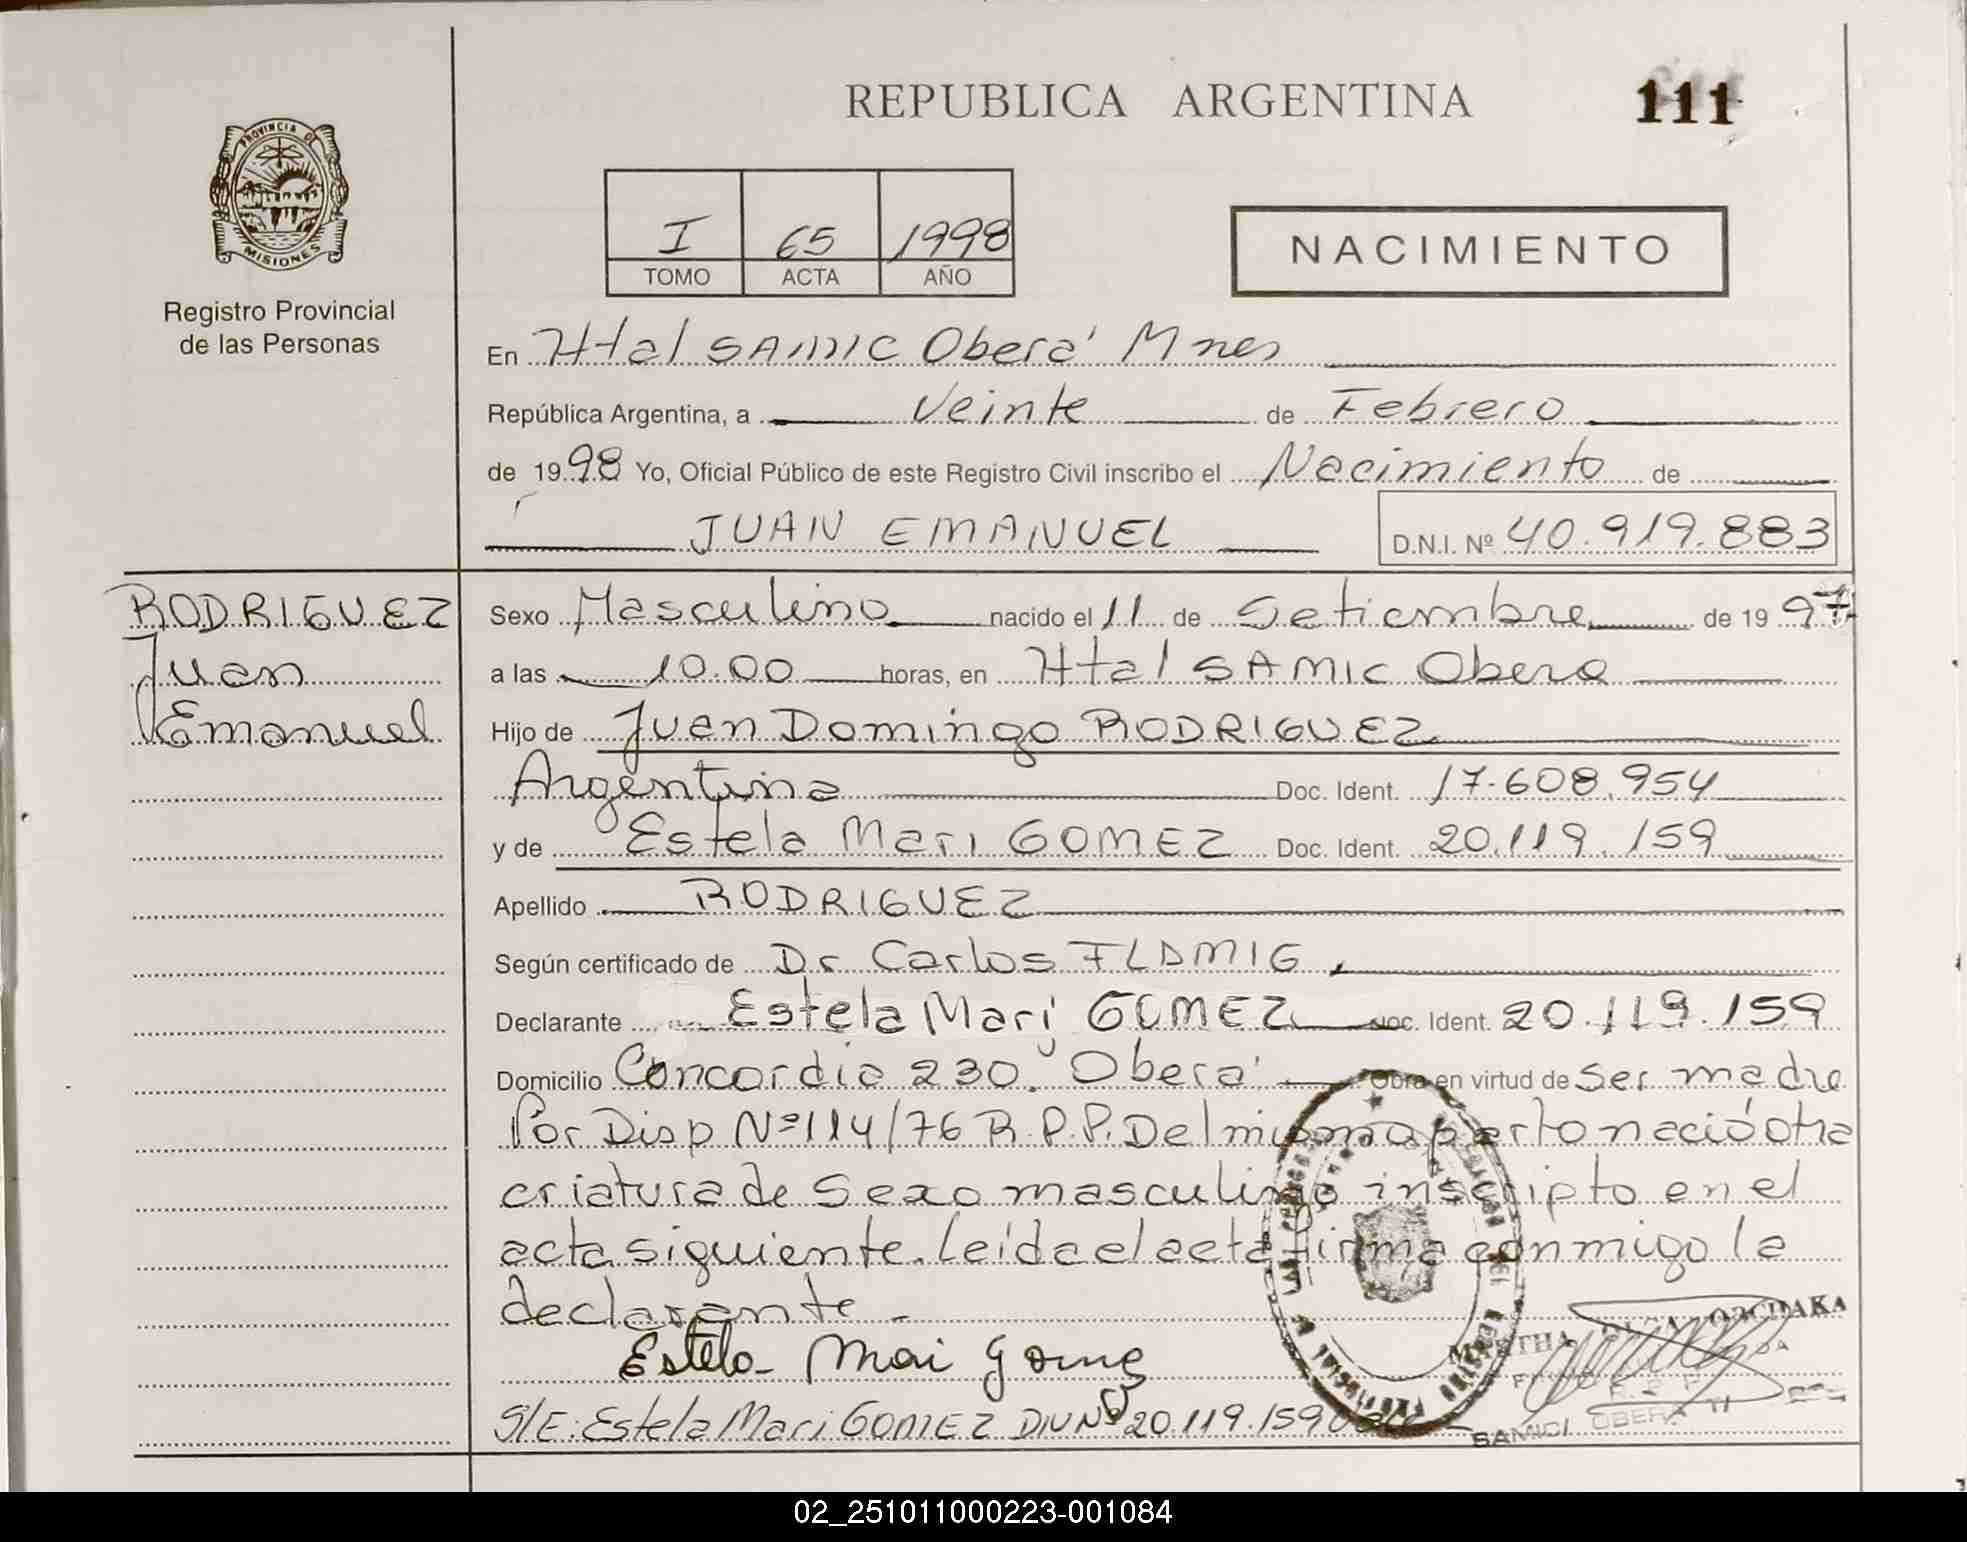 REPUBLICA ARGENTINA
111
PROVINCIA DE
MISIONES
Registro Provincial
de las Personas
I 65 1998
TOMO ACTA AÑO
NACIMIENTO
En Htal SAMIC Oberá Mnes
República Argentina, a Veinte de Febrero
de 1998 Yo, Oficial Público de este Registro Civil inscribo el Nacimiento de
JUAN EMANUEL D.N.I. Nº 40.919.883
RODRIGUEZ
Juan
Emanuel
Sexo Masculino nacido el 11 de Setiembre de 1997
a las 10.00 horas, en Htal SAMIC Obera
Hijo de Juan Domingo RODRIGUEZ
Argentina Doc. Ident. 17.608.954
y de Estela Mari GOMEZ Doc. Ident. 20.119.159
Apellido RODRIGUEZ
Según certificado de Dr Carlos FLDMIG
Declarante Estela Mari GOMEZ Doc. Ident. 20.119.159
Domicilio Concordia 230. Oberá Obra en virtud de ser madre
Por Disp Nº 114/76 R.P.P. Del mismo parto nació otra
criatura de sexo masculino inscripto en el
acta siguiente. Leída el acta firma conmigo la
declarante
Estela Mari Gomez
S/E: Estela Mari GOMEZ DNI Nº 20.119.159 Vale
MARTHA
SAMIC OBERA
02_251011000223-001084